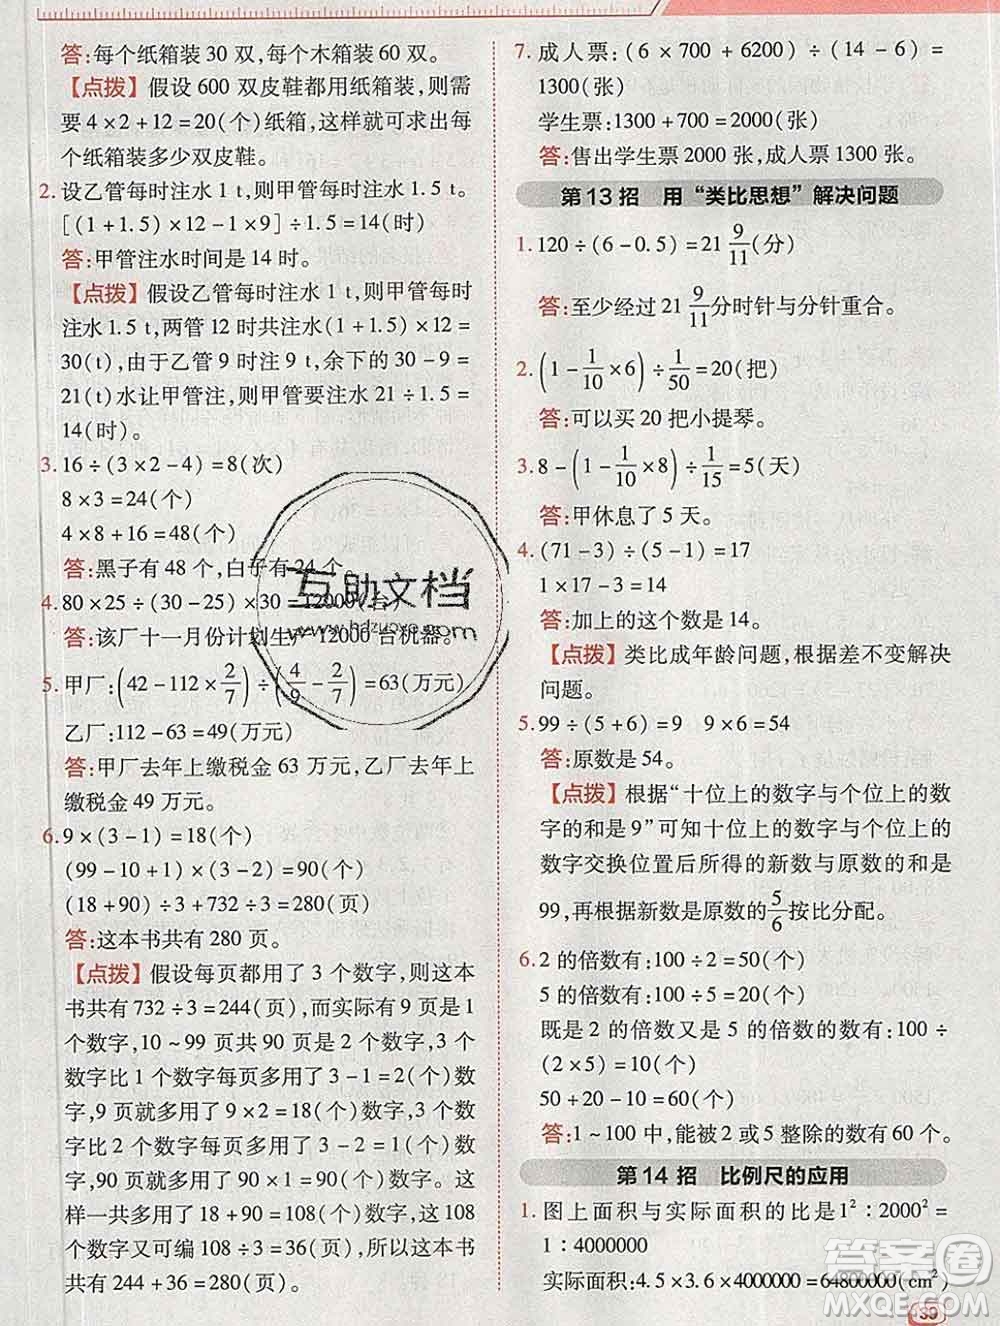 答:每个纸箱装 30 双,每个木箱装 60 双。
【点拨】假设 600 双皮鞋都用纸箱装,则需
要 4×2+12=20(个)纸箱,这样就可求出每
个纸箱装多少双皮鞋。
2. 设乙管每时注水 1 t,则甲管每时注水 1.5 t。
[(1+1.5)×12-1×9]÷1.5=14(时)
答:甲管注水时间是 14 时。
【点拨】假设乙管每时注水 1 t,则甲管每时
注水 1.5 t,两管 12 时共注水(1+1.5)×12=
30(t),由于乙管 9 时注 9 t,余下的 30-9=
21(t)水让甲管注,则甲管要注水 21÷1.5=
14(时)。
3. 16÷(3×2-4)=8(次)
8×3=24(个)
4×8+16=48(个)
答:黑子有 48 个,白子有 24 个。
4. 80×25÷(30-25)×30=12000(台)
答:该厂十一月份计划生产 12000 台机器。
5. 甲厂:(42-112×2/7)÷(4/9-2/7)=63(万元)
乙厂:112-63=49(万元)
答:甲厂去年上缴税金 63 万元,乙厂去年上
缴税金 49 万元。
6. 9×(3-1)=18(个)
(99-10+1)×(3-2)=90(个)
(18+90)÷3+732÷3=280(页)
答:这本书共有 280 页。
【点拨】假设每页都用了 3 个数字,则这本
书共有 732÷3=244(页),而实际有 9 页是 1
个数字,10~99 页共 90 页是 2 个数字,3 个
数字比 1 个数字每页多用了 3-1=2(个)数
字,9 页就多用了 9×2=18(个)数字,3 个数
字比 2 个数字每页多用了 3-2=1(个)数
字,90 页就多用了 90×1=90(个)数字。这
样一共多用了 18+90=108(个)数字,这 108
个数字又可编 108÷3=36(页),所以这本书
共有 244+36=280(页)。
7. 成人票:(6×700+6200)÷(14-6)=
1300(张)
学生票:1300+700=2000(张)
答:售出学生票 2000 张,成人票 1300 张。
第 13 招 用“类比思想”解决问题
1. 120÷(6-0.5)=21 9/11(分)
答:至少经过 21 9/11 分时针与分针重合。
2. (1-1/10×6)÷1/50=20(把)
答:可以买 20 把小提琴。
3. 8-(1-1/10×8)÷1/15=5(天)
答:甲休息了 5 天。
4. (71-3)÷(5-1)=17
1×17-3=14
答:加上的这个数是 14。
【点拨】类比成年龄问题,根据差不变解决
问题。
5. 99÷(5+6)=9 9×6=54
答:原数是 54。
【点拨】根据“十位上的数字与个位上的数
字的和是 9”可知十位上的数字与个位上的
数字交换位置后所得的新数与原数的和是
99,再根据新数是原数的 5/6 按比分配。
6. 2 的倍数有:100÷2=50(个)
5 的倍数有:100÷5=20(个)
既是 2 的倍数又是 5 的倍数的数有:100÷
(2×5)=10(个)
50+20-10=60(个)
答:1~100 中,能被 2 或 5 整除的数有 60 个。
第 14 招 比例尺的应用
1. 图上面积与实际面积的比是 1²:2000²=
1:4000000
实际面积:4.5×3.6×4000000=64800000(cm²)
互助文档
www.hdzuoye.com
答案圈
MXQE.COM